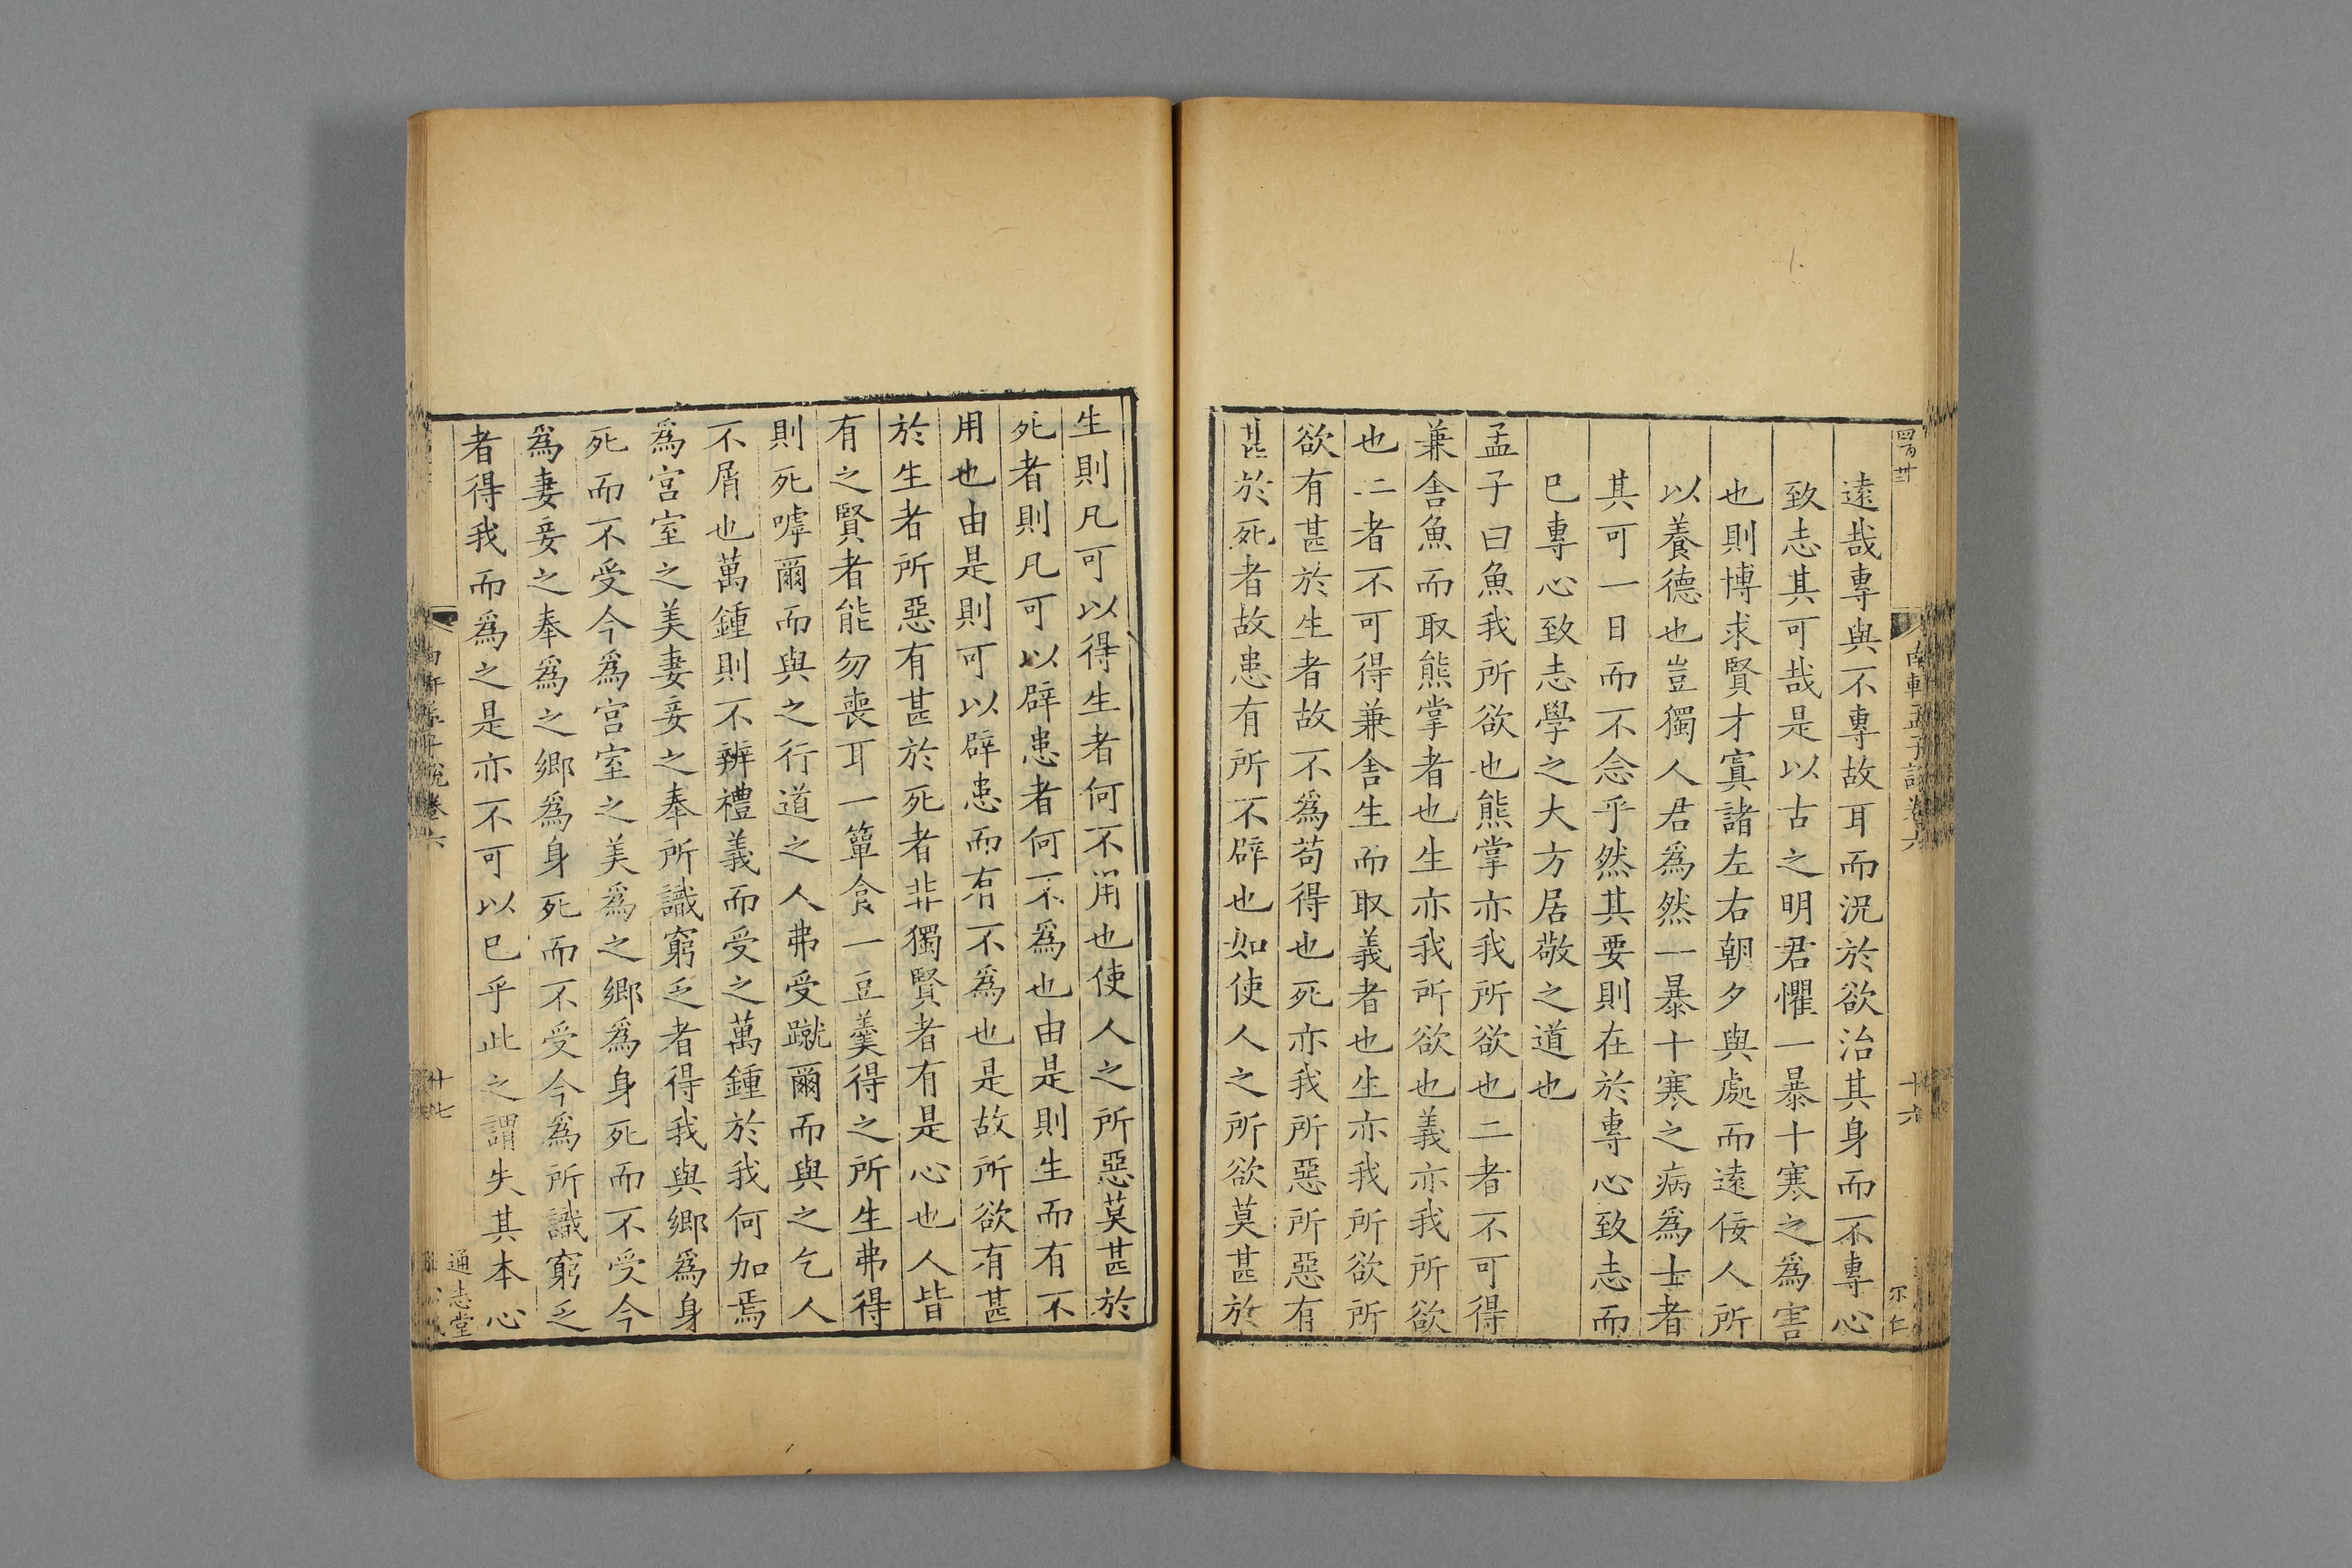 南軒孟子說卷六
十六
遠哉專與不專故耳而況於欲治其身而不專心
致志其可哉是以古之明君懼一暴十寒之為害
也則博求賢才寘諸左右朝夕與處而遠佞人所
以養德也豈獨人君為然一暴十寒之病為士者
其可一日而不念乎然其要則在於專心致志而
巳專心致志學之大方居敬之道也
孟子曰魚我所欲也熊掌亦我所欲也二者不可得
兼舍魚而取熊掌者也生亦我所欲也義亦我所欲
也二者不可得兼舍生而取義者也生亦我所欲所
欲有甚於生者故不為苟得也死亦我所惡所惡有
甚於死者故患有所不辟也如使人之所欲莫甚於
生則凡可以得生者何不用也使人之所惡莫甚於
死者則凡可以辟患者何不為也由是則生而有不
用也由是則可以辟患而有不為也是故所欲有甚
於生者所惡有甚於死者非獨賢者有是心也人皆
有之賢者能勿喪耳一簞食一豆羹得之所生弗得
則死嘑爾而與之行道之人弗受蹴爾而與之乞人
不屑也萬鍾則不辨禮義而受之萬鍾於我何加焉
為宮室之美妻妾之奉所識窮乏者得我與鄉為身
死而不受今為宮室之美為之鄉為身死而不受今
為妻妾之奉為之鄉為身死而不受今為所識窮乏
者得我而為之是亦不可以巳乎此之謂失其本心
南軒孟子說卷六
十七
通志堂